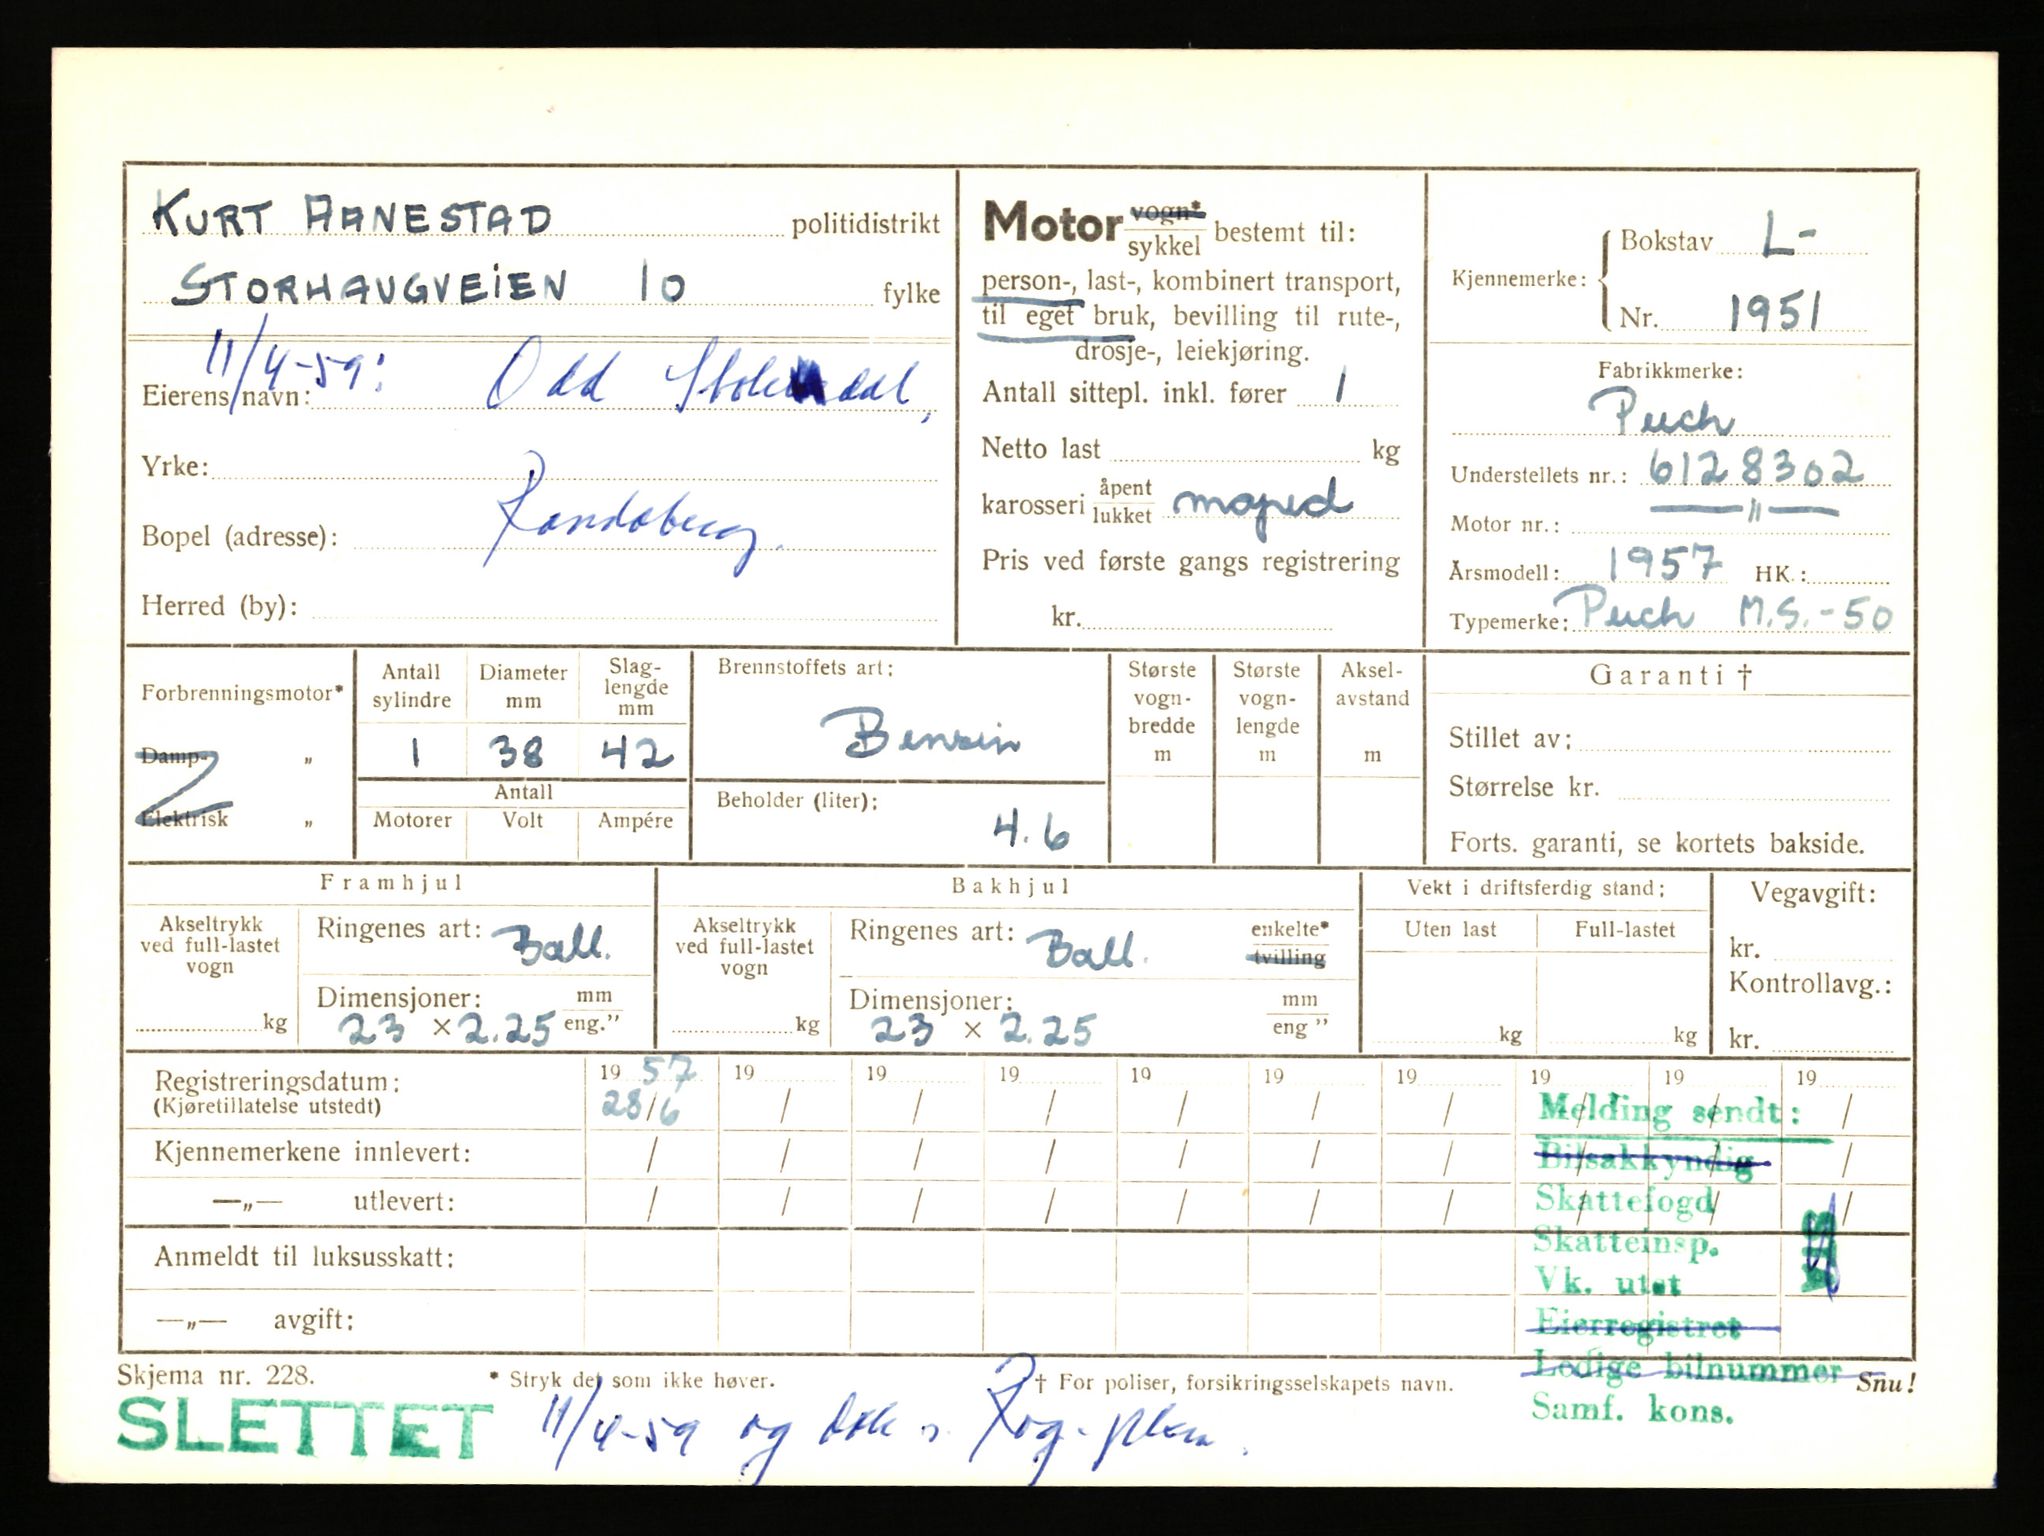 KURT AANESTAD politidistrikt
STORHAUGVEIEN 10 fylke
11/4-59: Odd
Eierens navn:
Yrke:
Bopel (adresse): Randaberg.
Herred (by):
Motor vogn* sykkel bestemt til:
person-, last-, kombinert transport,
til eget bruk, bevilling til rute-,
drosje-, leiekjøring.
Antall sittepl. inkl. fører 1
Netto last kg
karosseri åpent lukket moped
Pris ved første gangs registrering
kr.
Kjennemerke: Bokstav L-
Nr. 1951
Fabrikkmerke:
Puch
Understellets nr.: 6128302
Motor nr.: — " —
Årsmodell: 1957 HK.:
Typemerke: Puch M.S.-50
Forbrenningsmotor*
Damp- „
Elektrisk „
Antall sylindre
Diameter mm
Slag-lengde mm
1 38 42
Antall
Motorer Volt Ampére
Brennstoffets art:
Bensin
Beholder (liter):
4.6
Største vogn-bredde m
Største vogn-lengde m
Aksel-avstand m
Garanti †
Stillet av:
Størrelse kr.
Forts. garanti, se kortets bakside.
Framhjul
Akseltrykk ved full-lastet vogn
kg
Ringenes art: Ball.
Dimensjoner: mm
23 × 2.25 eng."
Bakhjul
Akseltrykk ved full-lastet vogn
kg
Ringenes art: Ball. enkelte* tvilling
Dimensjoner: mm
23 × 2.25 eng "
Vekt i driftsferdig stand:
Uten last Full-lastet
kg kg
Vegavgift:
kr.
Kontrollavg.:
kr.
Registreringsdatum: 19 57 19 19 19 19 19 19 19 19 19
(Kjøretillatelse utstedt) 28/6 / / / / / / / / /
Kjennemerkene innlevert: / / / / / / / / / /
—„— utlevert: / / / / / / / / / /
Anmeldt til luksusskatt:
—„— avgift:
Melding sendt:
Bilsakkyndig
Skattefogd
Skatteinsp.
Vk. utst
Eierregistret
Ledige bilnummer
Samf. kons.
Skjema nr. 228. * Stryk det som ikke høver. † For poliser, forsikringsselskapets navn. Snu!
SLETTET 11/4-59 og